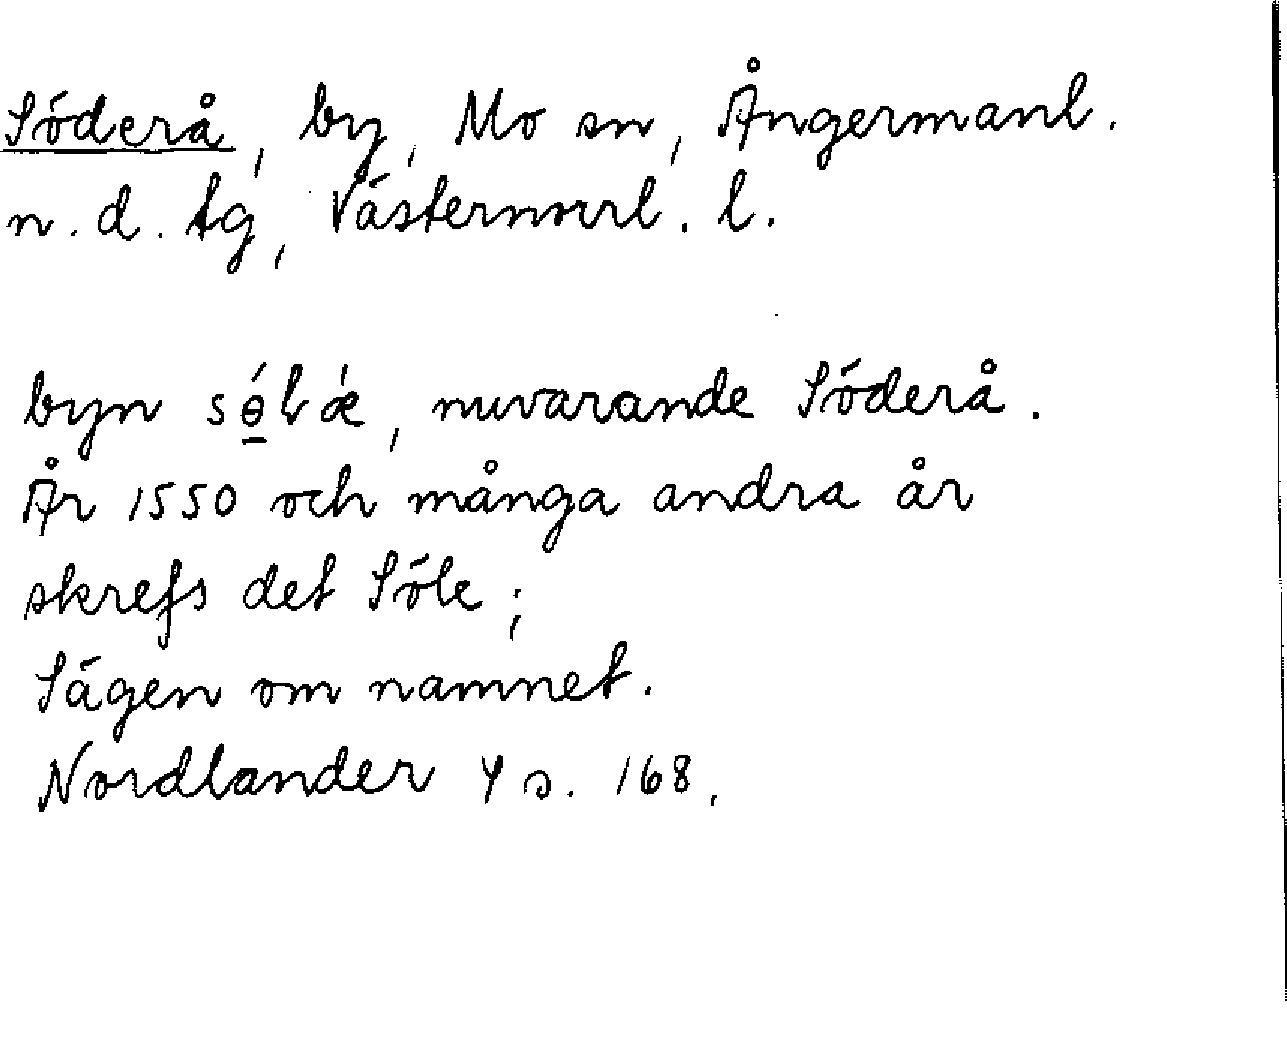 Söderå, by, Mo sn, Ångermanl.
n.d. tg, Västernorrl. l.
byn sө̲́lǽ, nuvarande Söderå.
År 1550 och många andra år
skrefs det Söle;
Sägen om namnet.
Nordlander 4 s. 168.